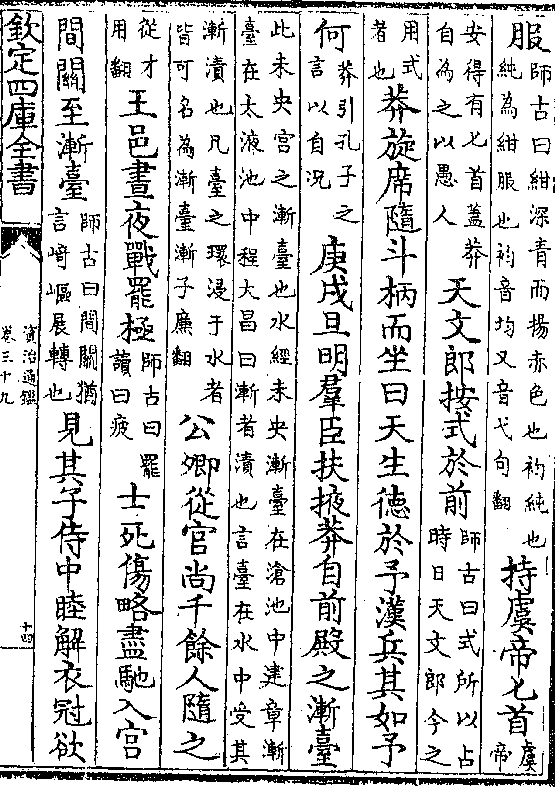 服師古曰紺深青而揚赤色也袀純也純為紺服也袀音均又音弋句翻持虞帝匕首虞帝
安得有匕首蓋莽自為之以愚人天文郎按式於前師古曰式所以占時日天文郎今之
用式者也莽旋席隨斗柄而坐曰天生德於予漢兵其如予
何莽引孔子之言以自況庚戌旦明羣臣扶掖莽自前殿之漸臺
此未央宮之漸臺也水經未央漸臺在滄池中建章漸臺在太液池中程大昌曰漸者漬也言臺在水中受其
漸漬也凡臺之環浸于水者皆可名為漸臺漸子廉翻公卿從官尚千餘人隨之
從才用翻王邑晝夜戰罷極師古曰罷讀曰疲士死傷略盡馳入宫
間關至漸臺師古曰間關猶言崎嶇展轉也見其子侍中睦解衣冠欲
欽定四庫全書
資治通鑑
卷三十九
十四